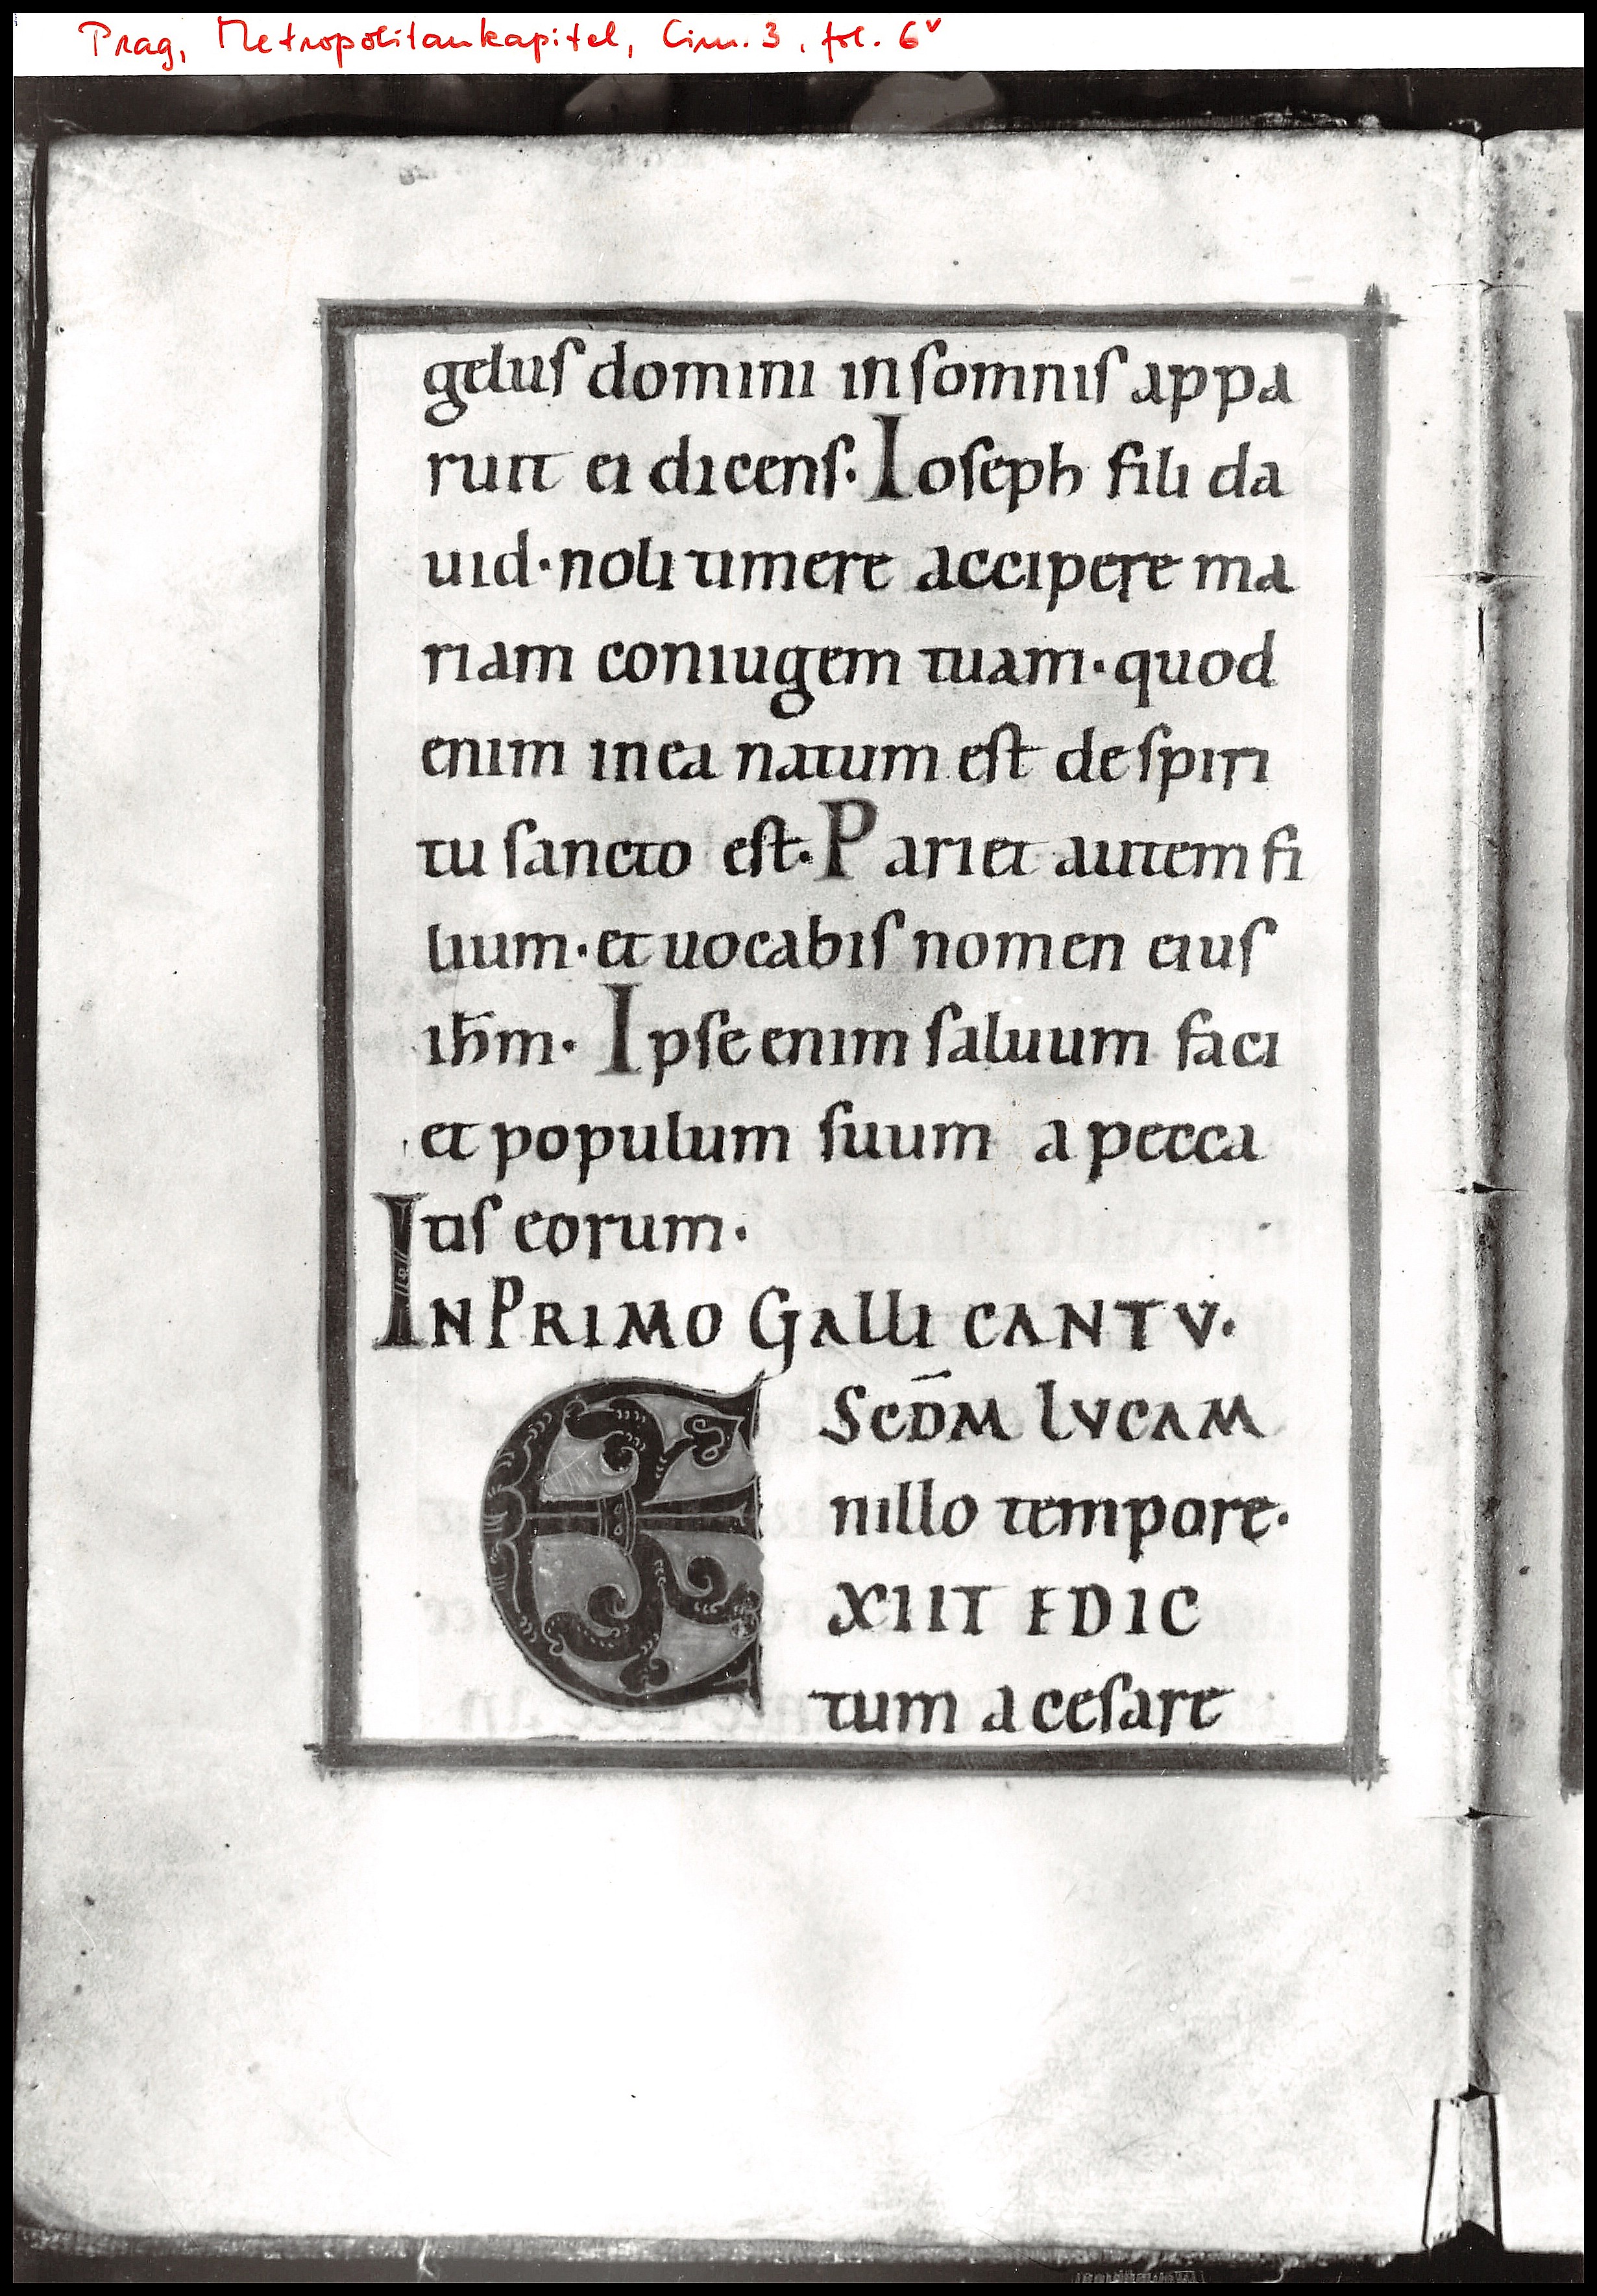 Prag, Metropolitankapitel, Cim. 3, fol. 6v
geluſ domini inſomniſ appa
ruit ei dicenſ· Ioſeph fili da
uid· noli timere accipere ma
riam coniugem tuam· quod
enim in ea natum eſt de ſpiri
tu ſancto eſt· Pariet autem fi
lium· et uocabiſ nomen eiuſ
ihm̄· Ipſe enim ſaluum faci
et populum ſuum a pecca
tiſ eorum·
IN PRIMO GALLI CANTV·
SCDM̄ LVCAM
nillo tempore·
EXIIT EDIC
tum a ceſare